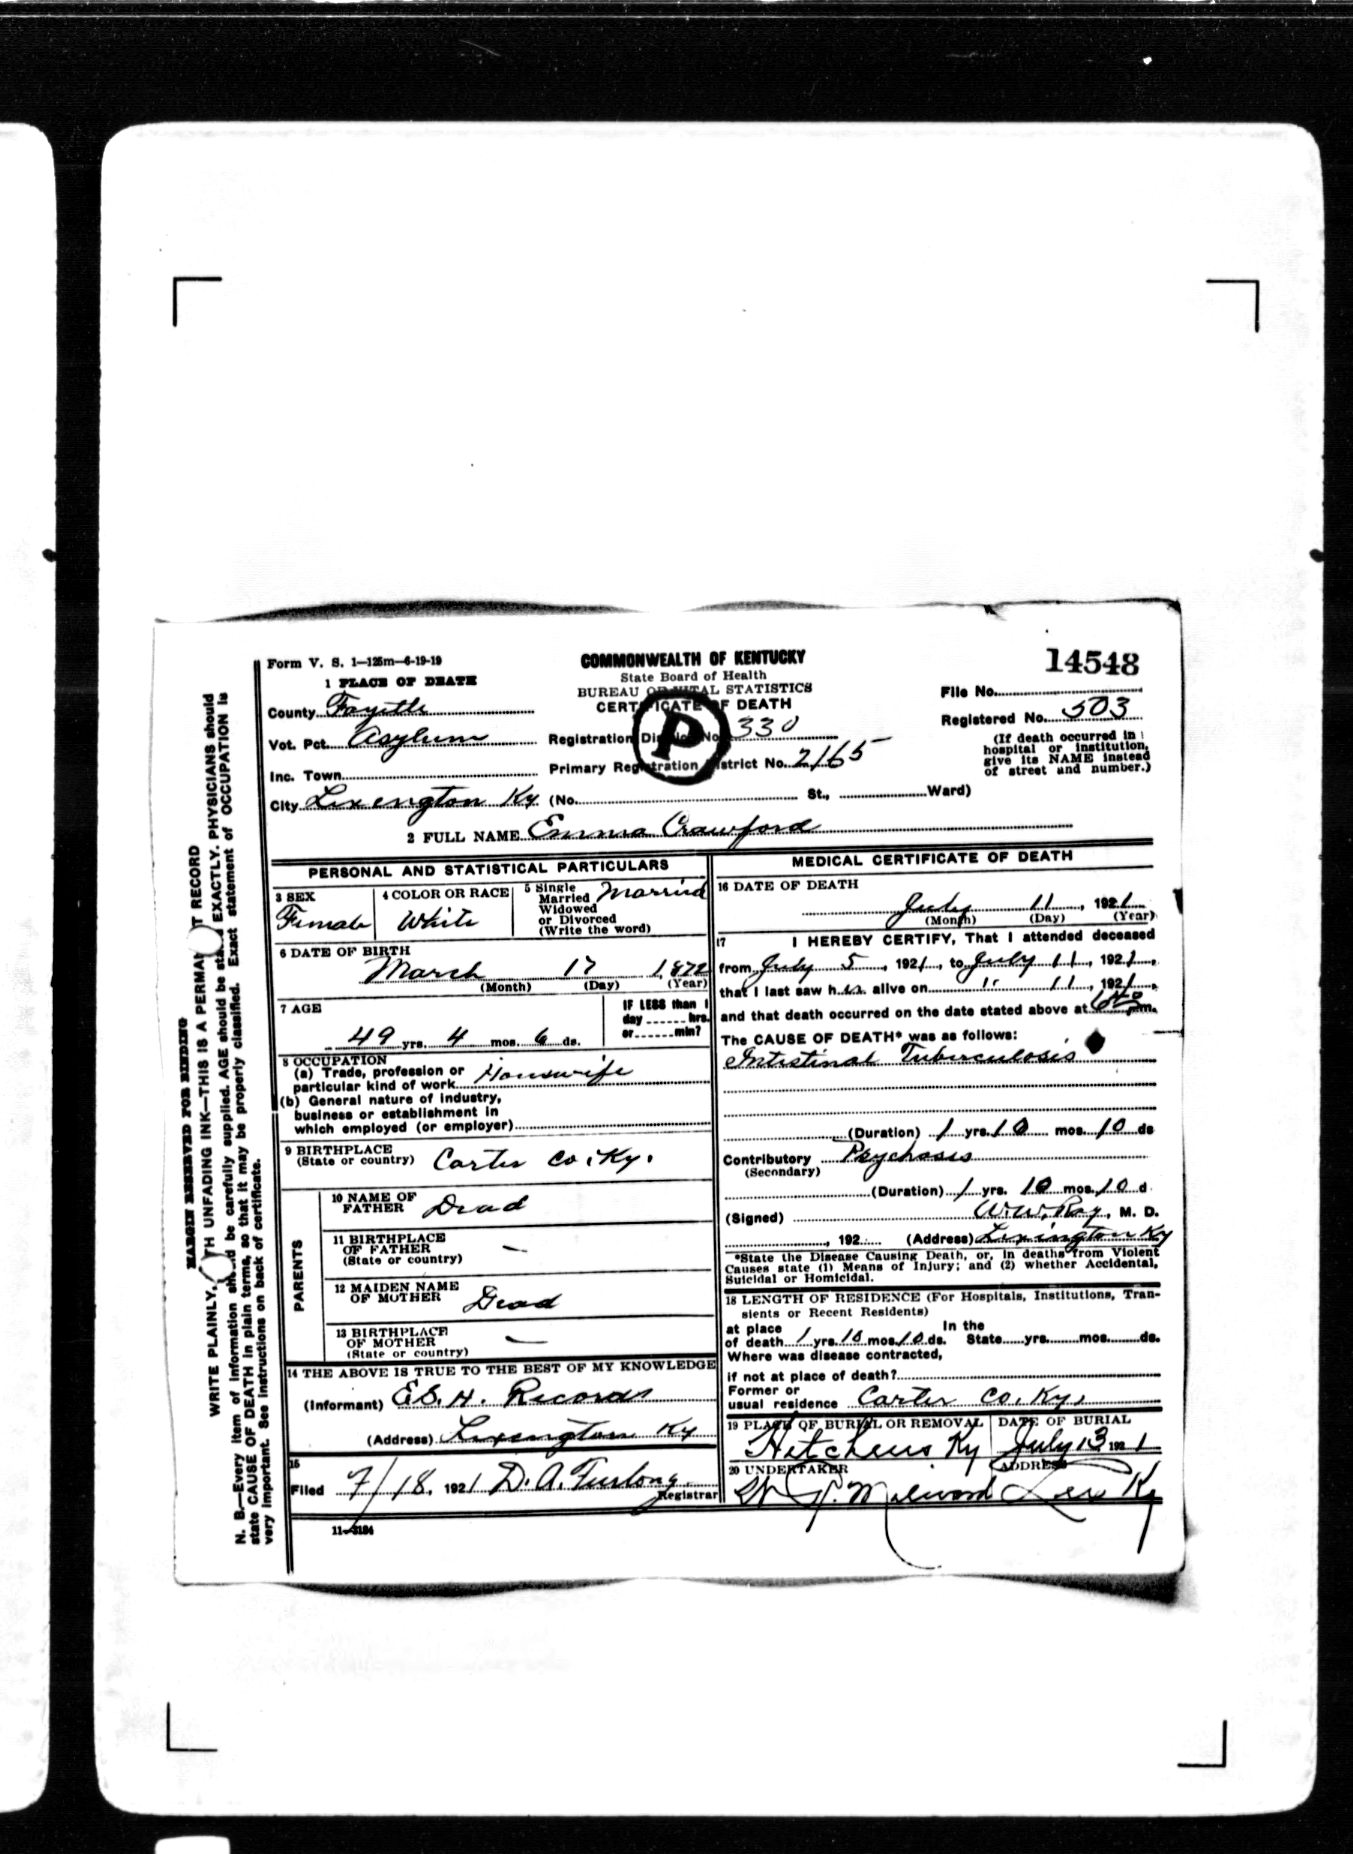 Form V. S. 1—125m—6-19-19
COMMONWEALTH OF KENTUCKY
State Board of Health
BUREAU OF VITAL STATISTICS
CERTIFICATE OF DEATH
14548
1 PLACE OF DEATH
County Fayette
Vot. Pct. Asylum
Inc. Town
City Lexington Ky. (No. St., Ward)
Registration District No. 330
Primary Registration District No. 2165
P
File No.
Registered No. 503
(If death occurred in
hospital or institution,
give its NAME instead
of street and number.)
2 FULL NAME Emma Crawford
PERSONAL AND STATISTICAL PARTICULARS
3 SEX
Female
4 COLOR OR RACE
White
5 Single
Married
Widowed
or Divorced
(Write the word)
Married
6 DATE OF BIRTH
March 17 1,872
(Month) (Day) (Year)
7 AGE
49 yrs. 4 mos. 6 ds.
IF LESS than 1
day hrs.
or min?
8 OCCUPATION
(a) Trade, profession or
particular kind of work Housewife
(b) General nature of industry,
business or establishment in
which employed (or employer)
9 BIRTHPLACE
(State or country) Carter Co. Ky.
PARENTS
10 NAME OF
FATHER Dead
11 BIRTHPLACE
OF FATHER
(State or country) —
12 MAIDEN NAME
OF MOTHER Dead
13 BIRTHPLACE
OF MOTHER
(State or country) —
14 THE ABOVE IS TRUE TO THE BEST OF MY KNOWLEDGE
(Informant) E.S.H. Records
(Address) Lexington Ky
15
Filed 7/18, 1921 D. A. Furlong
Registrar
11—3184
MEDICAL CERTIFICATE OF DEATH
16 DATE OF DEATH
July 11, 1921
(Month) (Day) (Year)
17 I HEREBY CERTIFY, That I attended deceased
from July 5, 1921, to July 11, 1921,
that I last saw her alive on " 11, 1921,
and that death occurred on the date stated above at m.
The CAUSE OF DEATH* was as follows:
Intestinal Tuberculosis
(Duration) 1 yrs. 10 mos. 10 ds
Contributory Psychosis
(Secondary)
(Duration) 1 yrs. 10 mos. 10 d
(Signed) W. W. Ray, M. D.
, 192 (Address) Lexington Ky
*State the Disease Causing Death, or, in deaths from Violent
Causes state (1) Means of Injury; and (2) whether Accidental,
Suicidal or Homicidal.
18 LENGTH OF RESIDENCE (For Hospitals, Institutions, Tran-
sients or Recent Residents)
at place In the
of death 1 yrs. 10 mos. 10 ds. State yrs. mos. ds.
Where was disease contracted,
if not at place of death?
Former or
usual residence Carter Co. Ky.
19 PLACE OF BURIAL OR REMOVAL
Hitchens Ky
DATE OF BURIAL
July 13 1921
20 UNDERTAKER
W. R. Milward
ADDRESS
Lex Ky
MARGIN RESERVED FOR BINDING
WRITE PLAINLY, WITH UNFADING INK—THIS IS A PERMANENT RECORD
N. B.—Every item of information should be carefully supplied. AGE should be stated EXACTLY. PHYSICIANS should
state CAUSE OF DEATH in plain terms, so that it may be properly classified. Exact statement of OCCUPATION is
very important. See instructions on back of certificate.